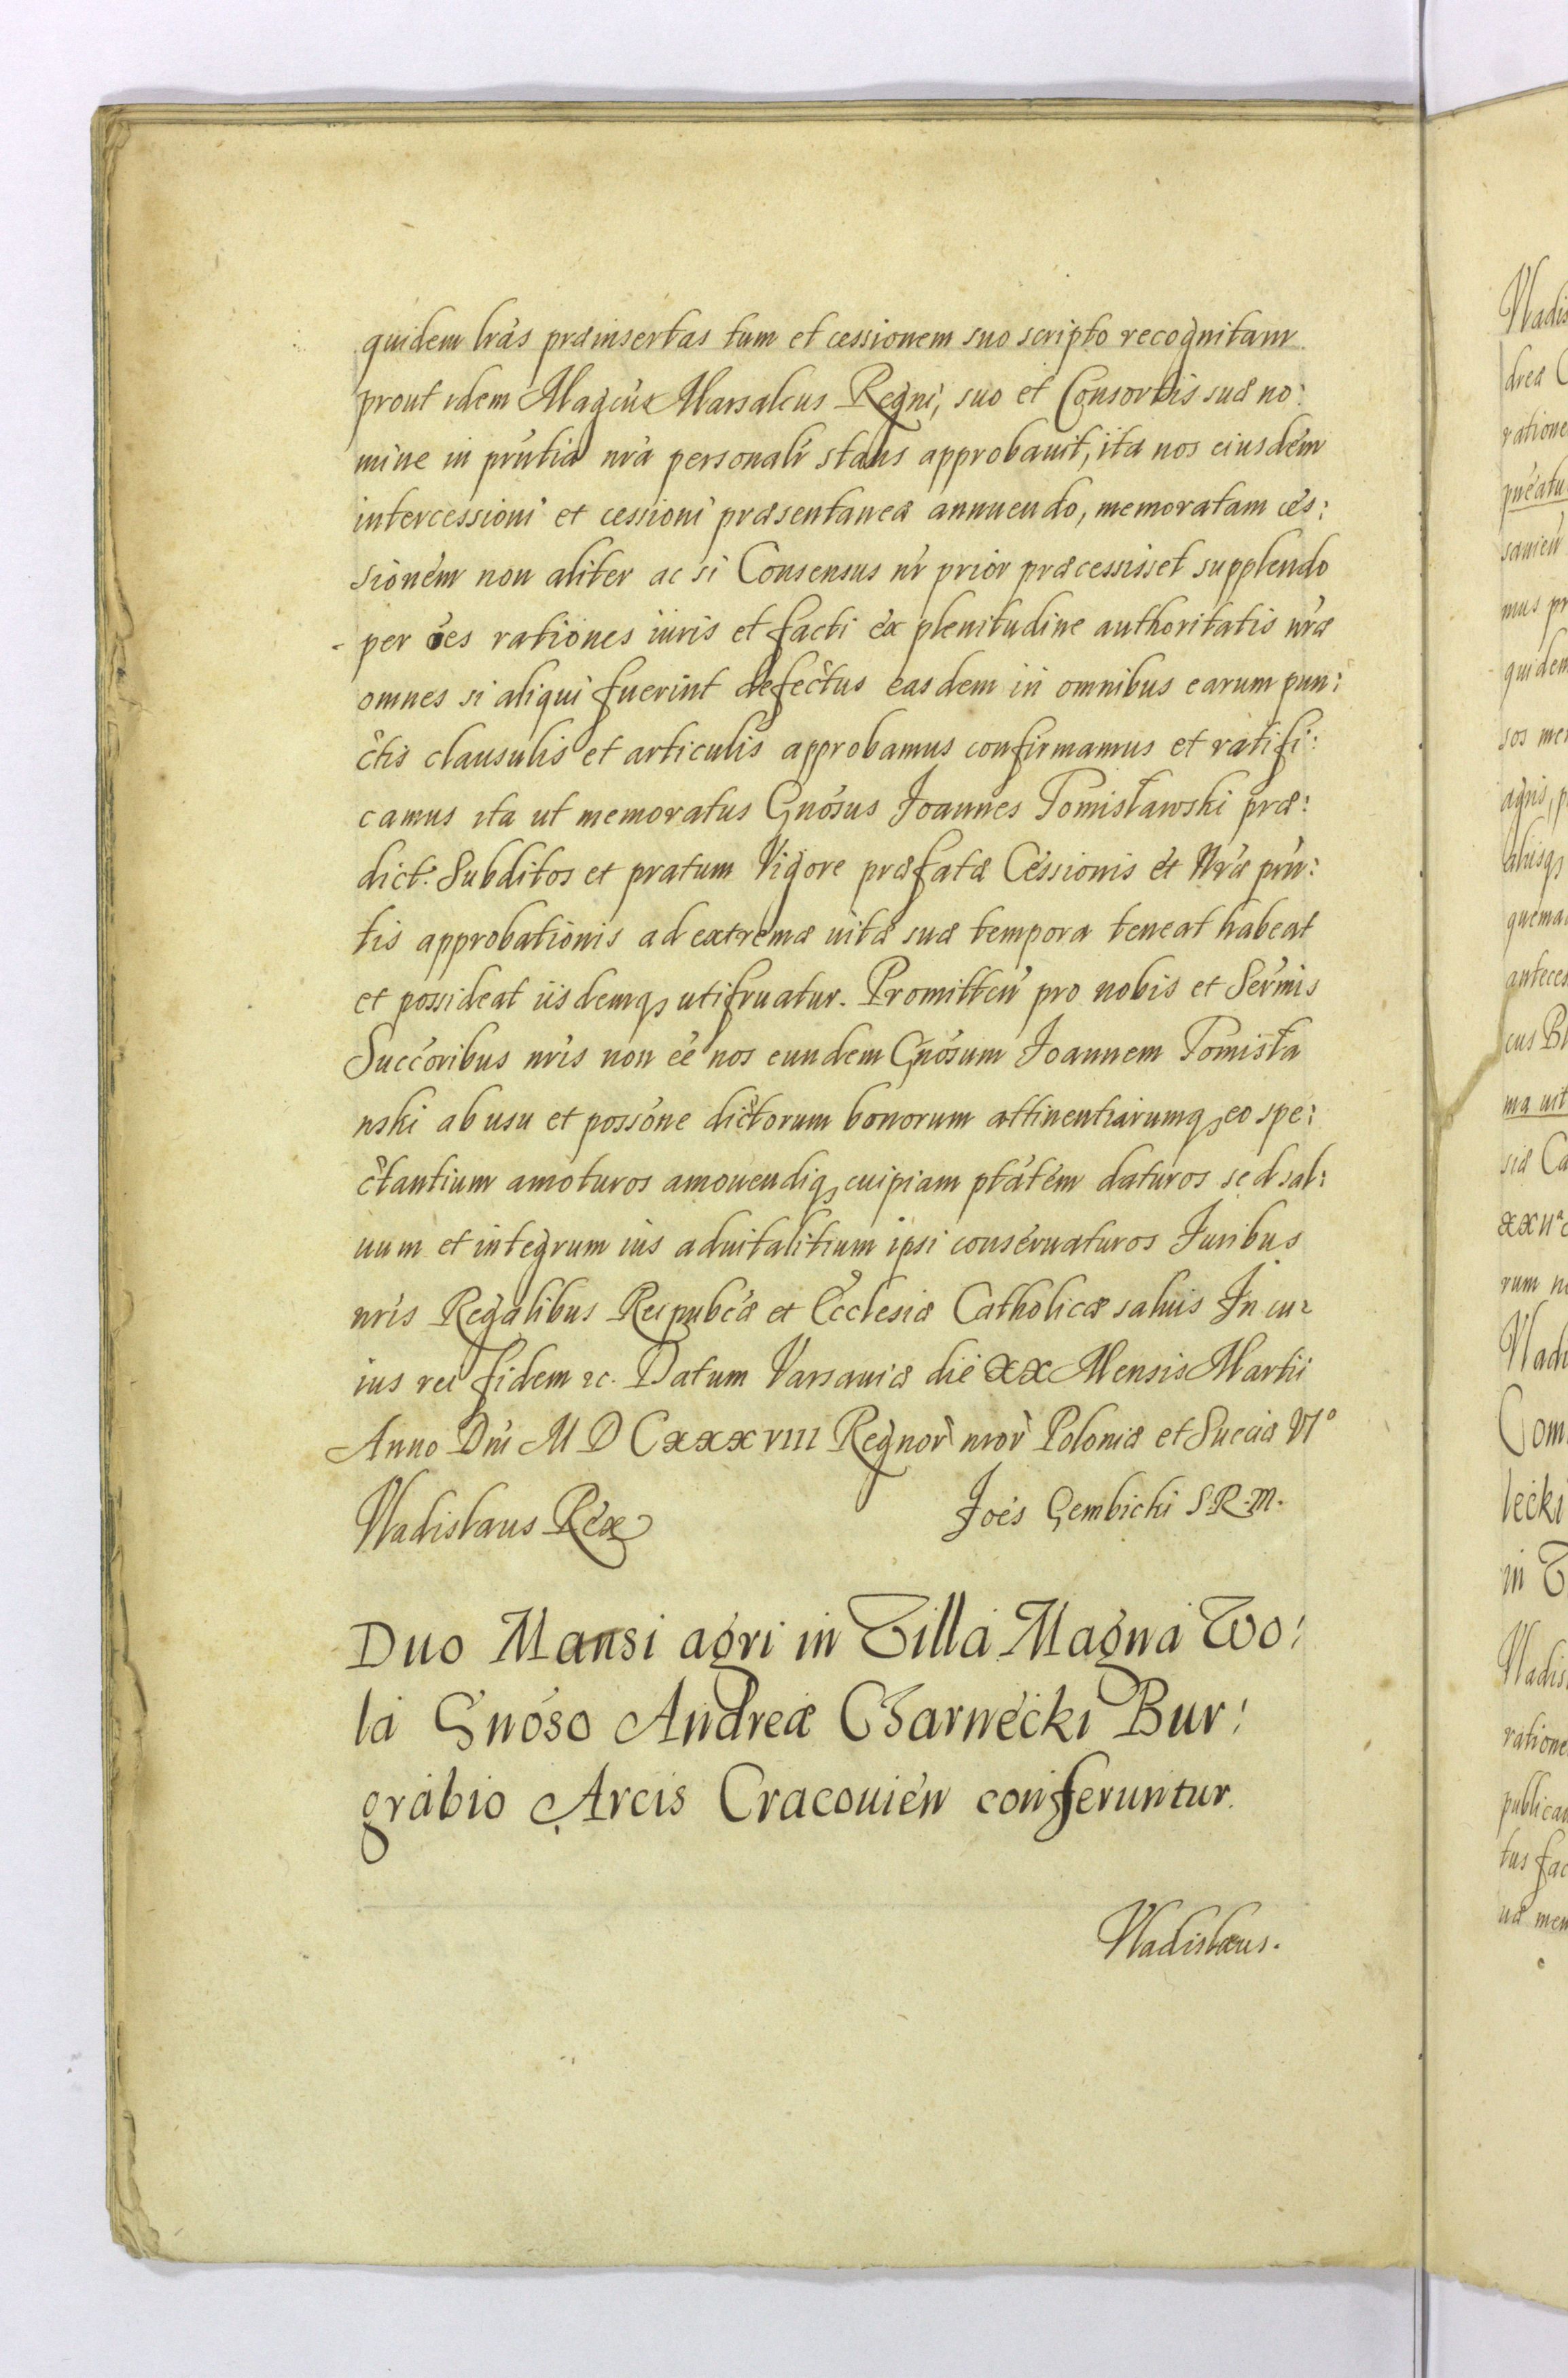 quidem lrás præinsertas tum et cessionem suo scripto recognitam
prout idem Magcús Marsalcus Regni, suo et Consortis suæ no:
mine in prńtia nŕa personalr stans approbauit, ita nos eiusdem
intercessioni et cessioni præsentaneæ annuendo, memoratam ces:
sionem non aliter ac si Consensus nŕ prior præcessisset supplendo
per oés rationes iuris et facti ex plenitudine authoritatis nŕæ
omnes si aliqui fuerint defectus easdem in omnibus earum pun:
ctis clausulis et articulis approbamus confirmamus et ratifi:
camus ita ut memoratus Gnósus Joannes Tomisławski præ:
dict: Subditos et pratum Vigore præfatæ Cessionis et Nŕæ prń:
tis approbationis ad extrema uitæ suæ tempora teneat habeat
et possideat iisdemqꝫ utifruatur. Promitteń pro nobis et Sermis
Succoribus nŕis non eé nos eundem Gnósum Joannem Tomisła
wski ab usu et possóne dictorum bonorum attinentiarumqꝫ eo spe:
ctantium amoturos amouendiqꝫ cuipiam ptátem daturos sed sal:
uum et integrum ius aduitalitium ipsi conseruaturos Juribus
nŕis Regalibus Reipubcæ et Ecclesiæ Catholicæ saluis In cu:
ius rei fidem ꝛc. Datum Varsauiæ die XX Mensis Martii
Anno Dni M D CxxxVIII Regnor nror Poloniæ et Sueciæ VIº
Vladislaus Rex Joés Gembicki S.R.M.
Duo Mansi agri in Villa Magna Wo:
la Gnóso Andreæ Czarnecki Bur:
grabio Arcis Cracouień conferuntur.
Vladislaus.